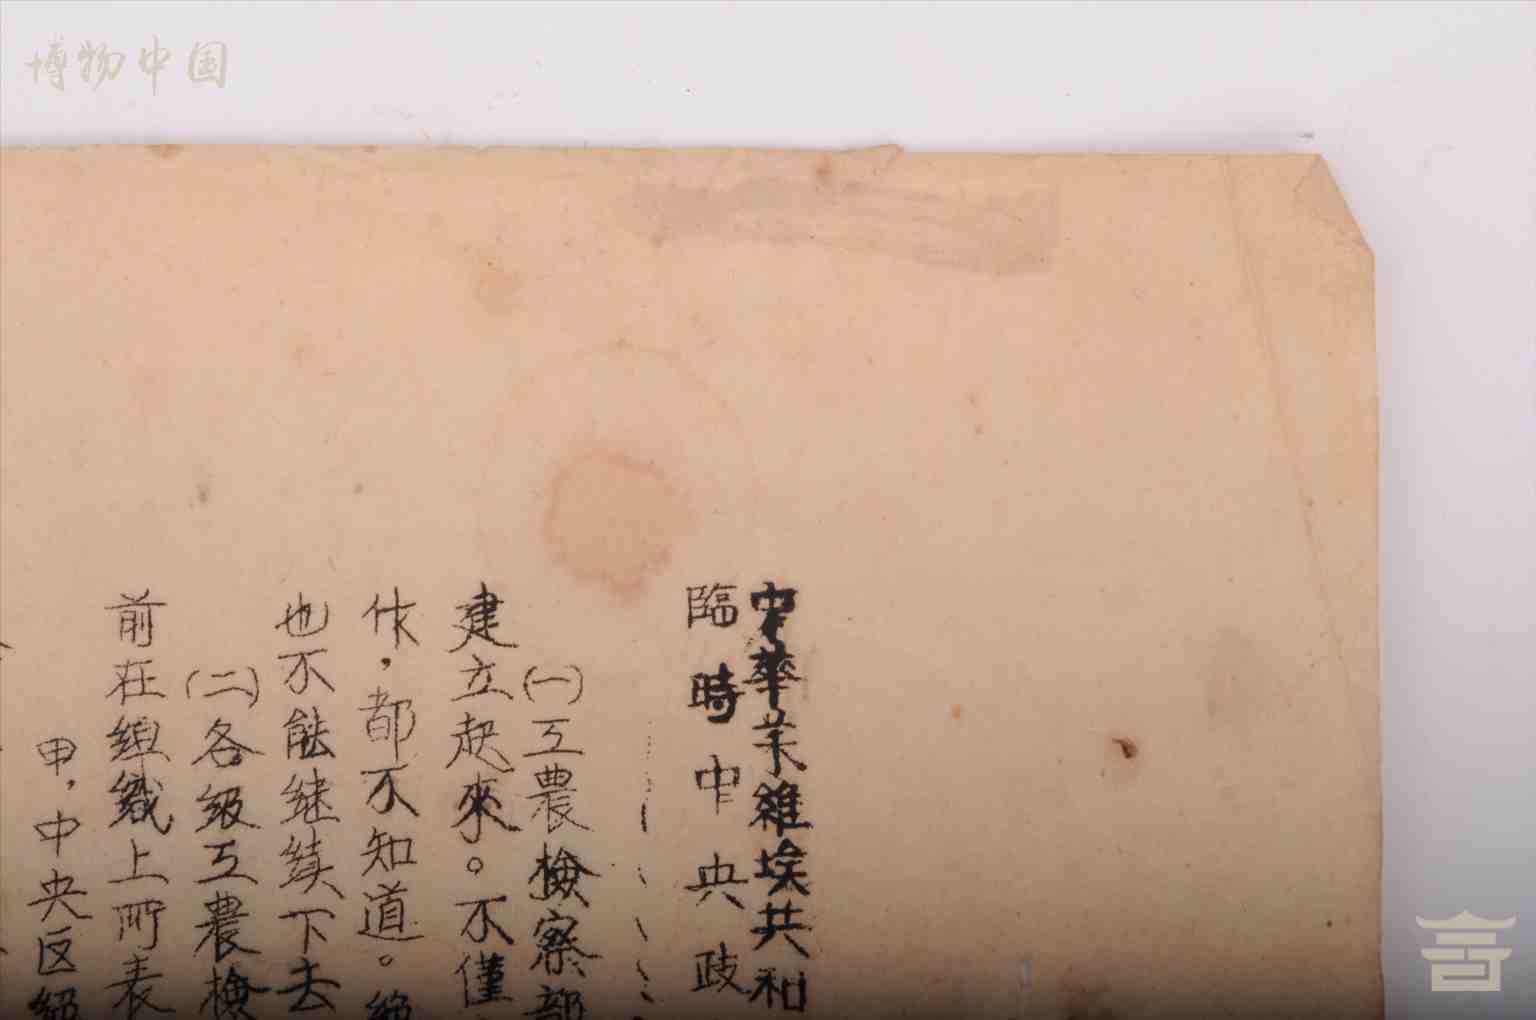 博物中国
中華苏維埃共和
臨時中央政
(一)工農檢察部
建立起來。不僅
作，都不知道。
也不能继续下去
(二)各級工農檢
前在組織上所表
甲，中央区級